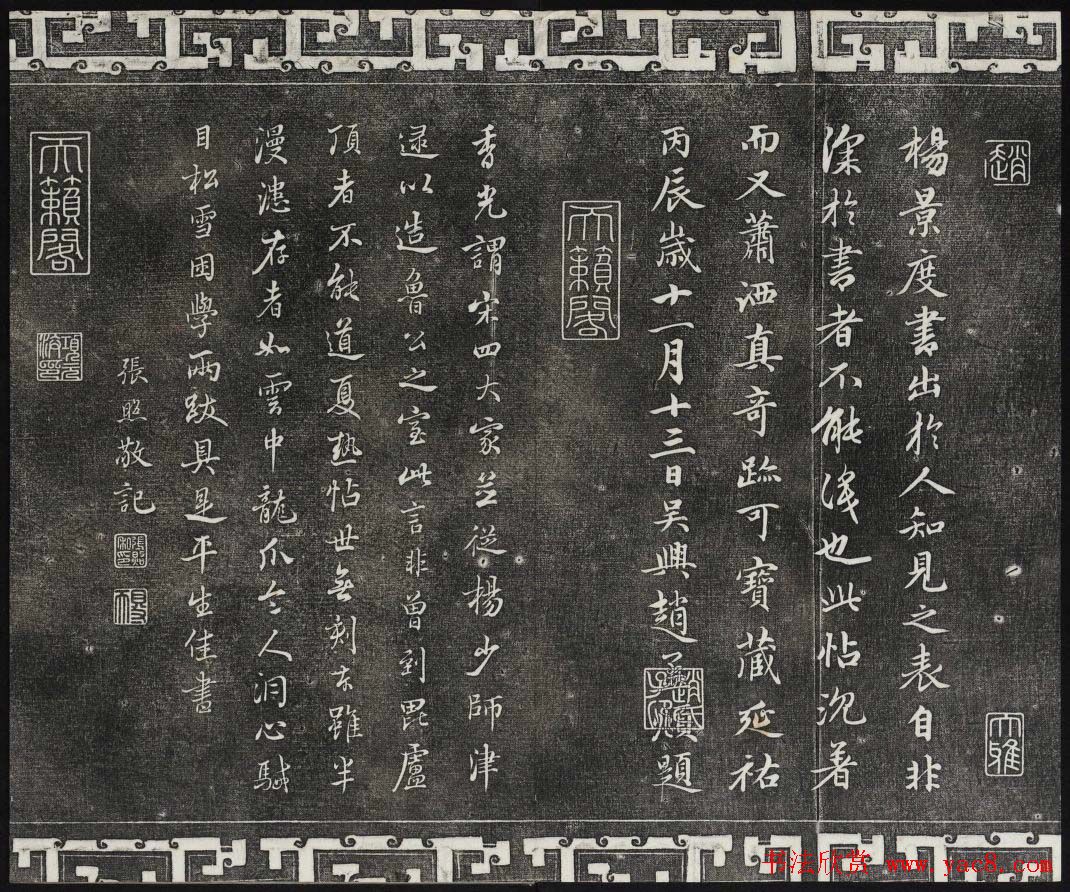 趙
大雅
楊景度書出於人知見之表自非
深於書者不能識也此帖沉著
而又蕭洒真奇跡可寶藏延祐
丙辰歲十一月十三日吳興趙孟頫題
趙氏子昂
天籟閣
香光謂宋四大家並從楊少師津
逮以造魯公之室此言非曾到毘盧
頂者不能道夏熱帖世無刻本雖半
漫漶存者如雲中龍爪令人洞心駴
目松雪困學兩跋具是平生佳書
張照敬記
天籟閣
書法欣赏 www.yac8.com